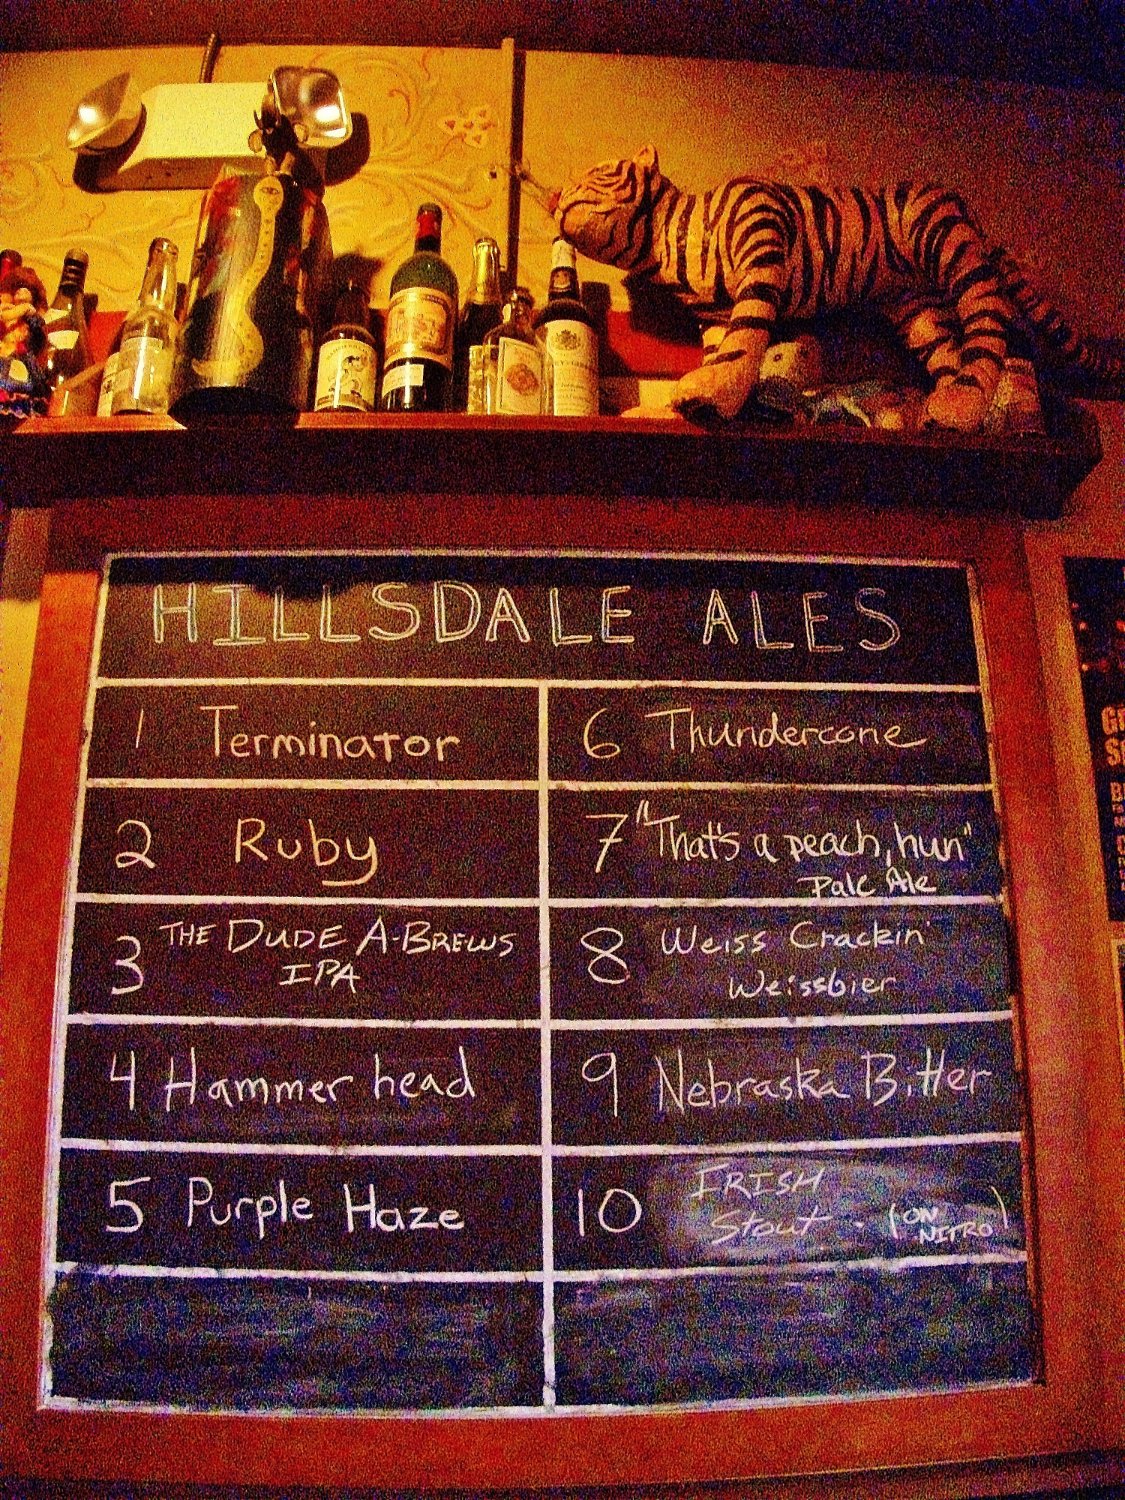 HILLSDALE ALES
1 Terminator
2 Ruby
3 THE DUDE A-BREWS
IPA
4 Hammerhead
5 Purple Haze
6 Thundercone
7 "That's a peach, hun"
Pale Ale
8 Weiss Crackin'
Weissbier
9 Nebraska Bitter
10 IRISH
Stout. (ON
NITRO)